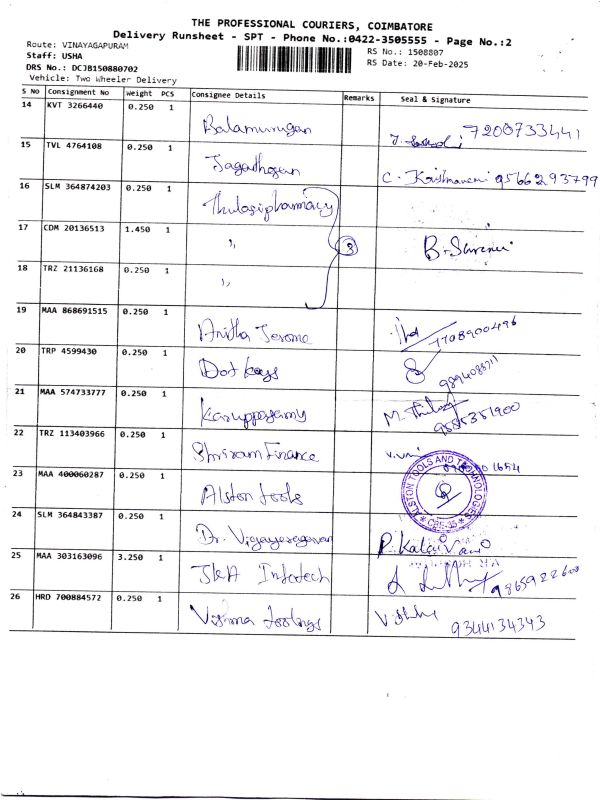 THE PROFESSIONAL COURIERS, COIMBATORE
Delivery Runsheet - SPT - Phone No.:0422-3505555 - Page No.:2
Route: VINAYAGAPURAM
Staff: USHA
DRS No.: DCJB150880702
Vehicle: Two Wheeler Delivery
RS No.: 1508807
RS Date: 20-Feb-2025
S No Consignment No Weight PCS Consignee Details Remarks Seal & Signature
14 KVT 3266440 0.250 1 Balamurugan 7200733441
15 TVL 4764108 0.250 1 Jagatheesan C. Krishnaveni 9566293799
16 SLM 364874203 0.250 1 Thulasipharmacy
17 CDM 20136513 1.450 1 ,, 3 B. Sarani
18 TRZ 21136168 0.250 1 ,,
19 MAA 868691515 0.250 1 Anitha Jerome 7708900496
20 TRP 4599430 0.250 1 Dot kays
21 MAA 574733777 0.250 1 Karuppasamy M. Thulasi
22 TRZ 113403966 0.250 1 Shriram Finance
23 MAA 400060287 0.250 1 Alston tools
ALSTON TOOLS AND TECHNOLOGIES
CBE-35
24 SLM 364843387 0.250 1 Dr. Vijayaragavan P. Kalai Vani
25 MAA 303163096 3.250 1 J&A Infotech
26 HRD 700884572 0.250 1 Vishma toolings 9344134343